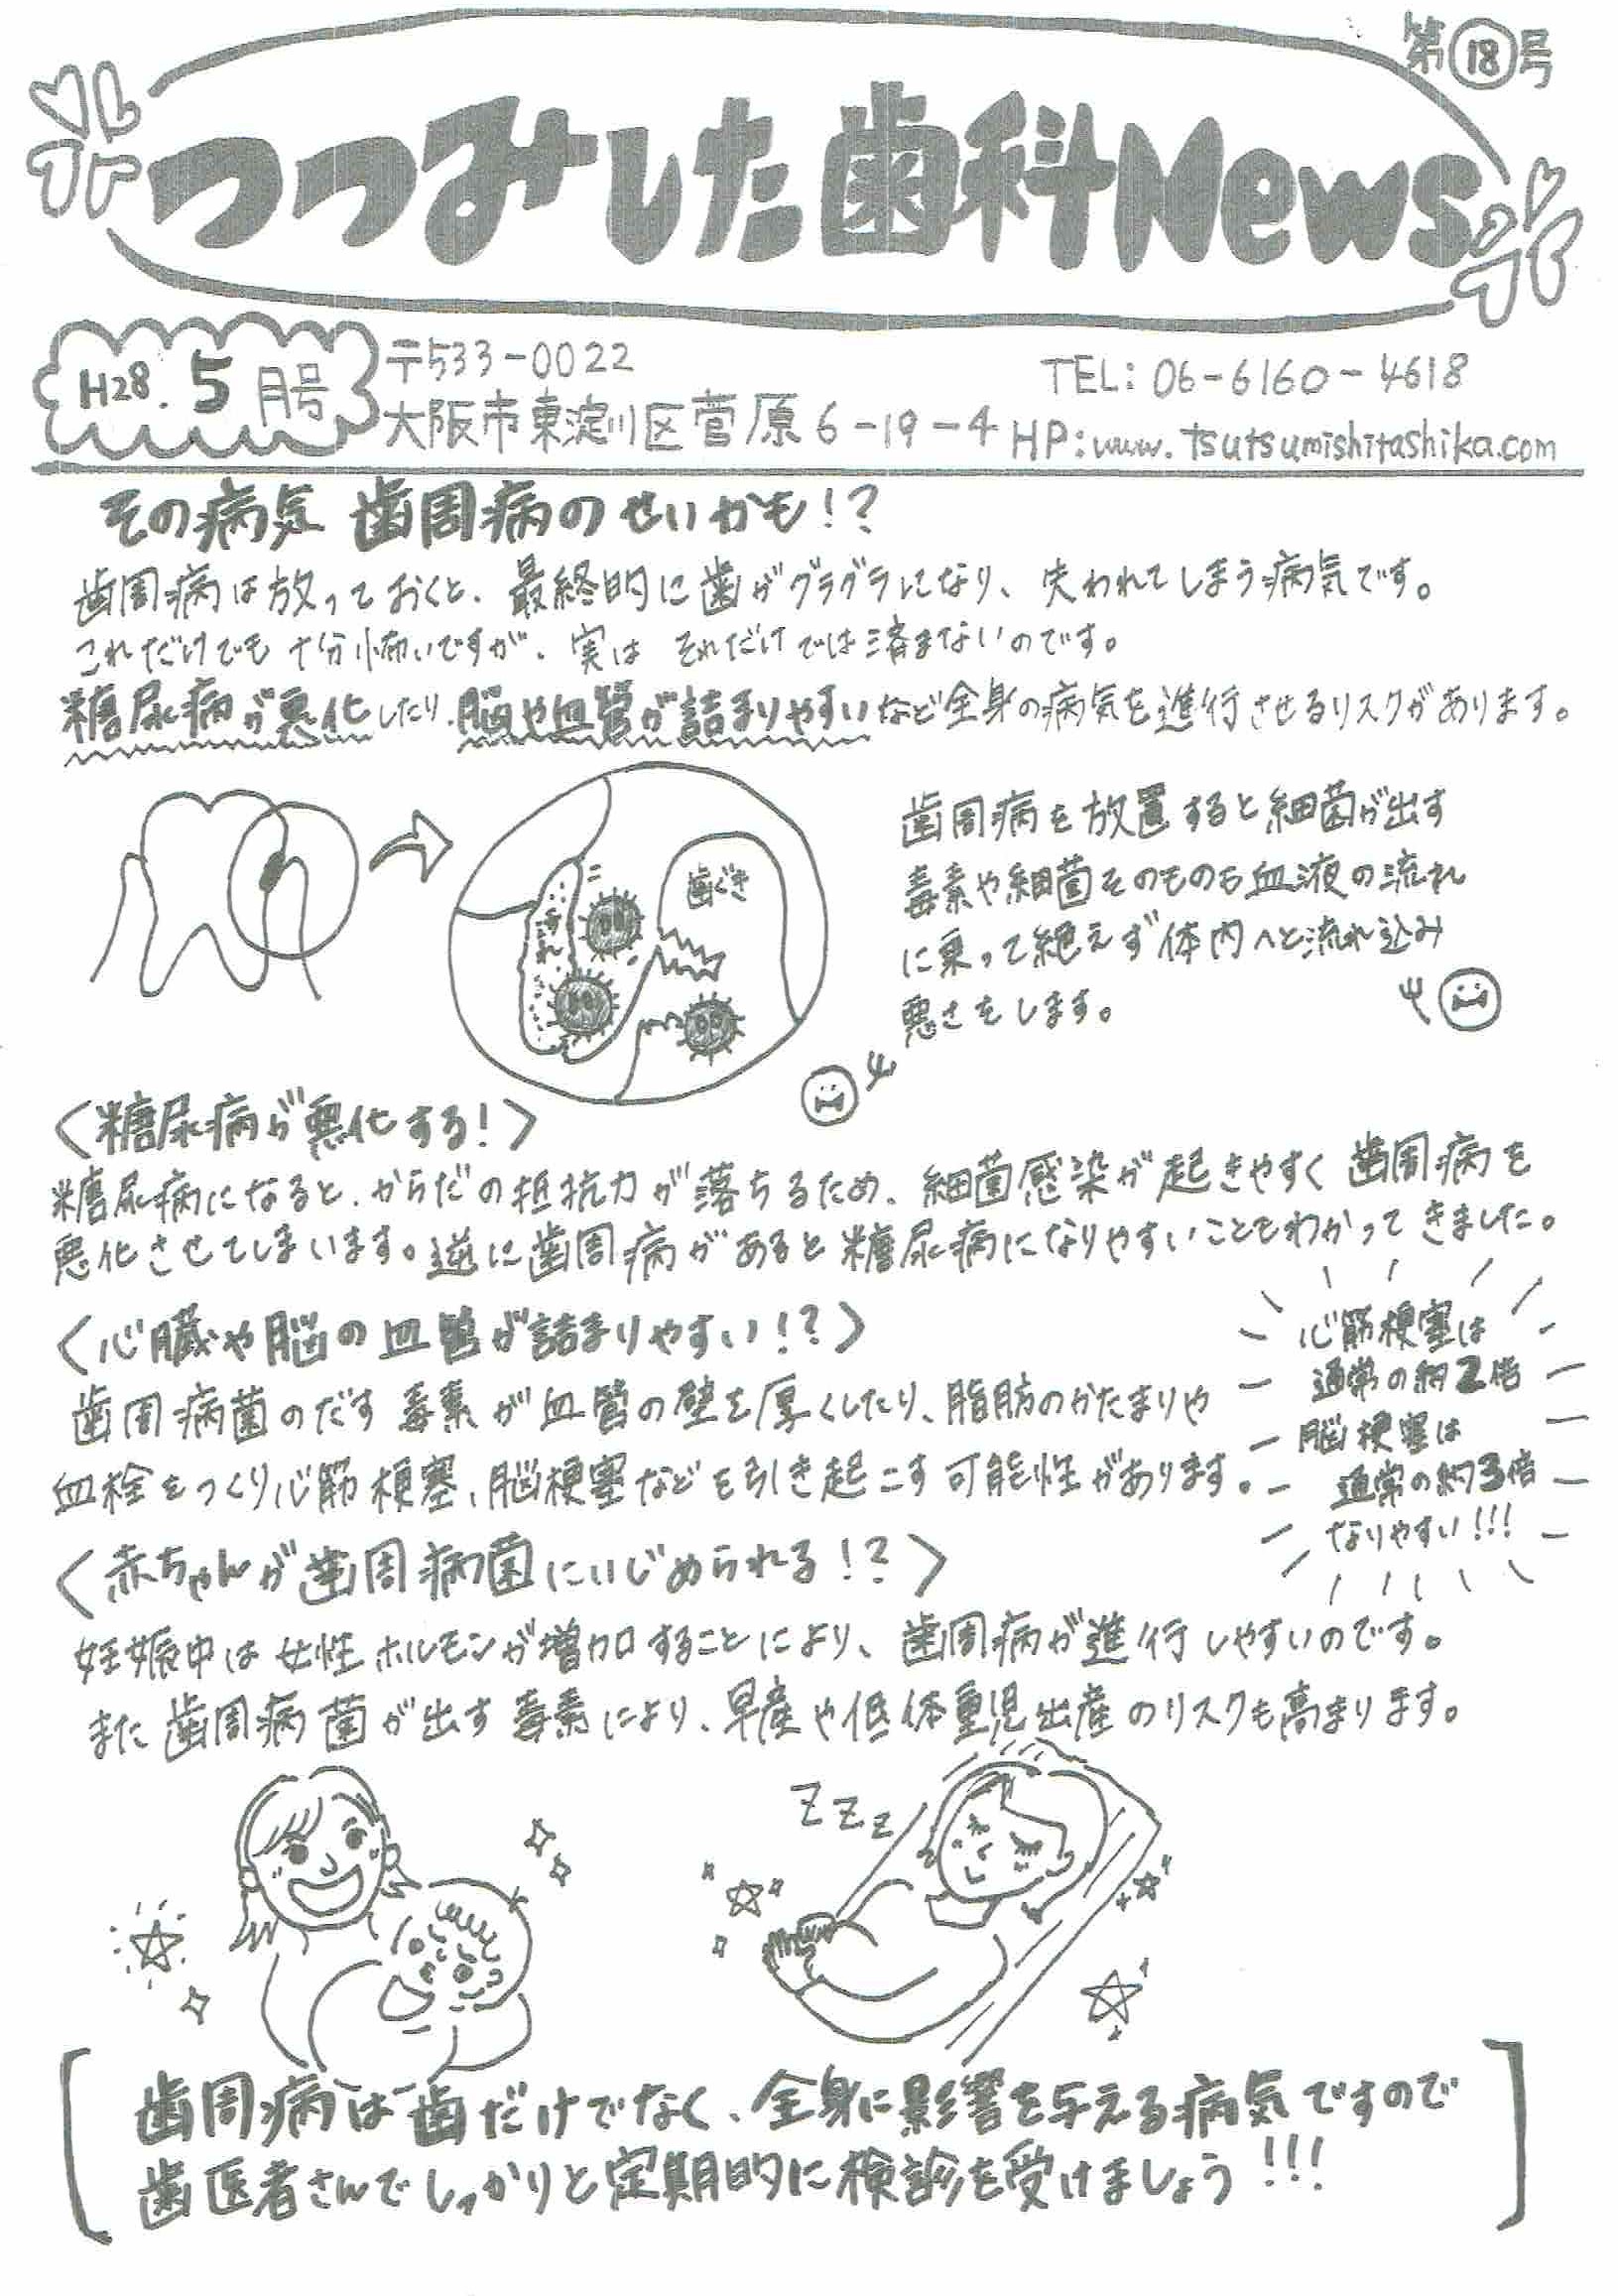 第⑱号
つつみした歯科News
H28.5月号
〒533-0022
大阪市東淀川区菅原6-19-4
TEL:06-6160-4618
HP:www.tsutsumishitashika.com
その病気 歯周病のせいかも!?
歯周病は放っておくと、最終的に歯がグラグラになり、失われてしまう病気です。
これだけでも十分怖いですが、実は それだけでは済まないのです。
糖尿病が悪化したり、脳や血管が詰まりやすいなど全身の病気を進行させるリスクがあります。
歯ぐき
歯周病を放置すると細菌が出す
毒素や細菌そのものも血液の流れ
に乗って絶えず体内へと流れ込み
悪さをします。
〈糖尿病が悪化する!〉
糖尿病になると、からだの抵抗力が落ちるため、細菌感染が起きやすく歯周病を
悪化させてしまいます。逆に歯周病があると糖尿病になりやすいこともわかってきました。
〈心臓や脳の血管が詰まりやすい!?〉
歯周病菌のだす毒素が血管の壁を厚くしたり、脂肪のかたまりや
血栓をつくり心筋梗塞、脳梗塞などを引き起こす可能性があります。
心筋梗塞は
通常の約2倍
脳梗塞は
通常の約3倍
なりやすい!!!
〈赤ちゃんが歯周病菌にいじめられる!?〉
妊娠中は女性ホルモンが増加することにより、歯周病が進行しやすいのです。
また歯周病菌が出す毒素により、早産や低体重児出産のリスクも高まります。
ZZz
歯周病は歯だけでなく、全身に影響を与える病気ですので
歯医者さんでしっかりと定期的に検診を受けましょう!!!